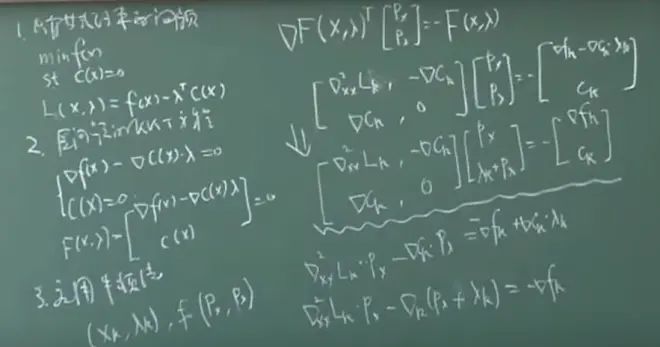 1.
min f(x)
st C(x)=0
L(x,λ)=f(x)-λᵀC(x)
2.
{∇f(x)-∇C(x)·λ=0
C(x)=0
F(x,λ)=[∇f(x)-∇C(x)λ
C(x)]=0
3.
(xₖ,λₖ), (Pₓ,P_λ)
∇F(x,λ)ᵀ[Pₓ
P_λ]=-F(x,λ)
[∇²ₓₓLₖ, -∇Cₖ
∇Cₖ, 0][Pₓ
P_λ]=-[∇fₖ-∇Cₖ·λₖ
Cₖ]
⇓[∇²ₓₓLₖ, -∇Cₖ
∇Cₖ, 0][Pₓ
λₖ+P_λ]=-[∇fₖ
Cₖ]
∇²ₓₓLₖ·Pₓ-∇Cₖ·P_λ=-∇fₖ+∇Cₖ·λₖ
∇²ₓₓLₖ·Pₓ-∇ₖ(P_λ+λₖ)=-∇fₖ